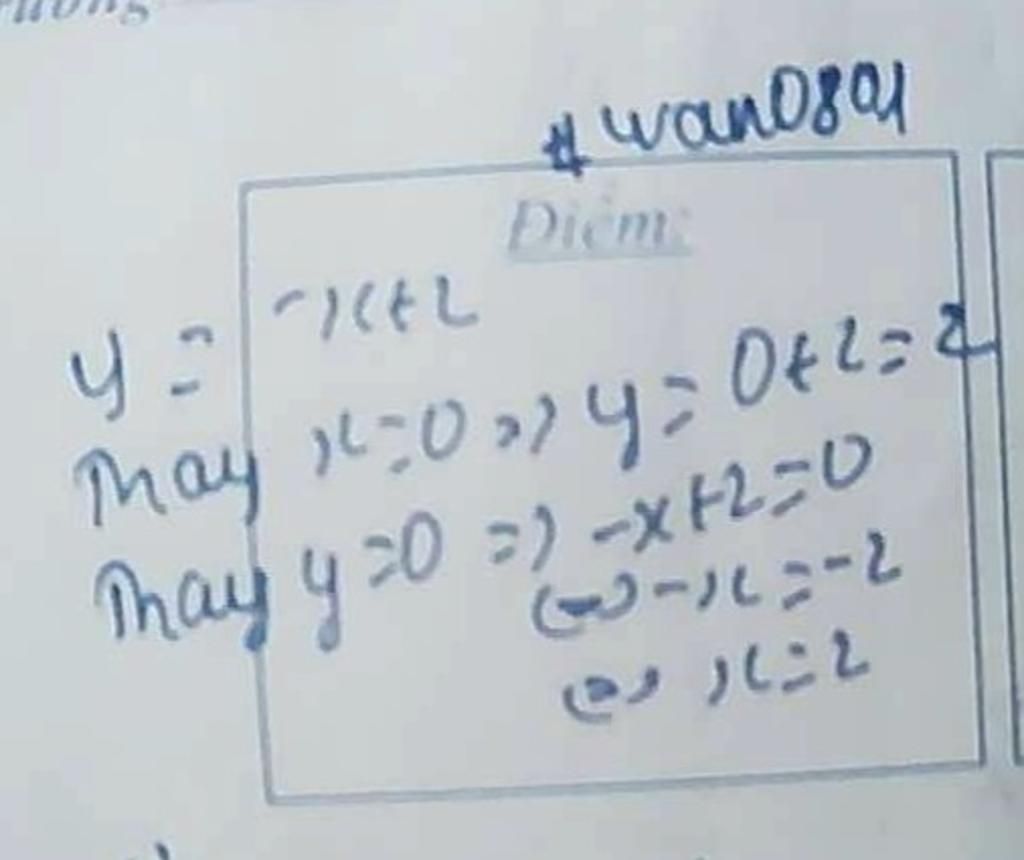 #wan0801
Điểm:
y = -x+2
Thay x=0 => y= 0+2=2
Thay y=0 => -x+2=0
<=> -x=-2
<=> x=2